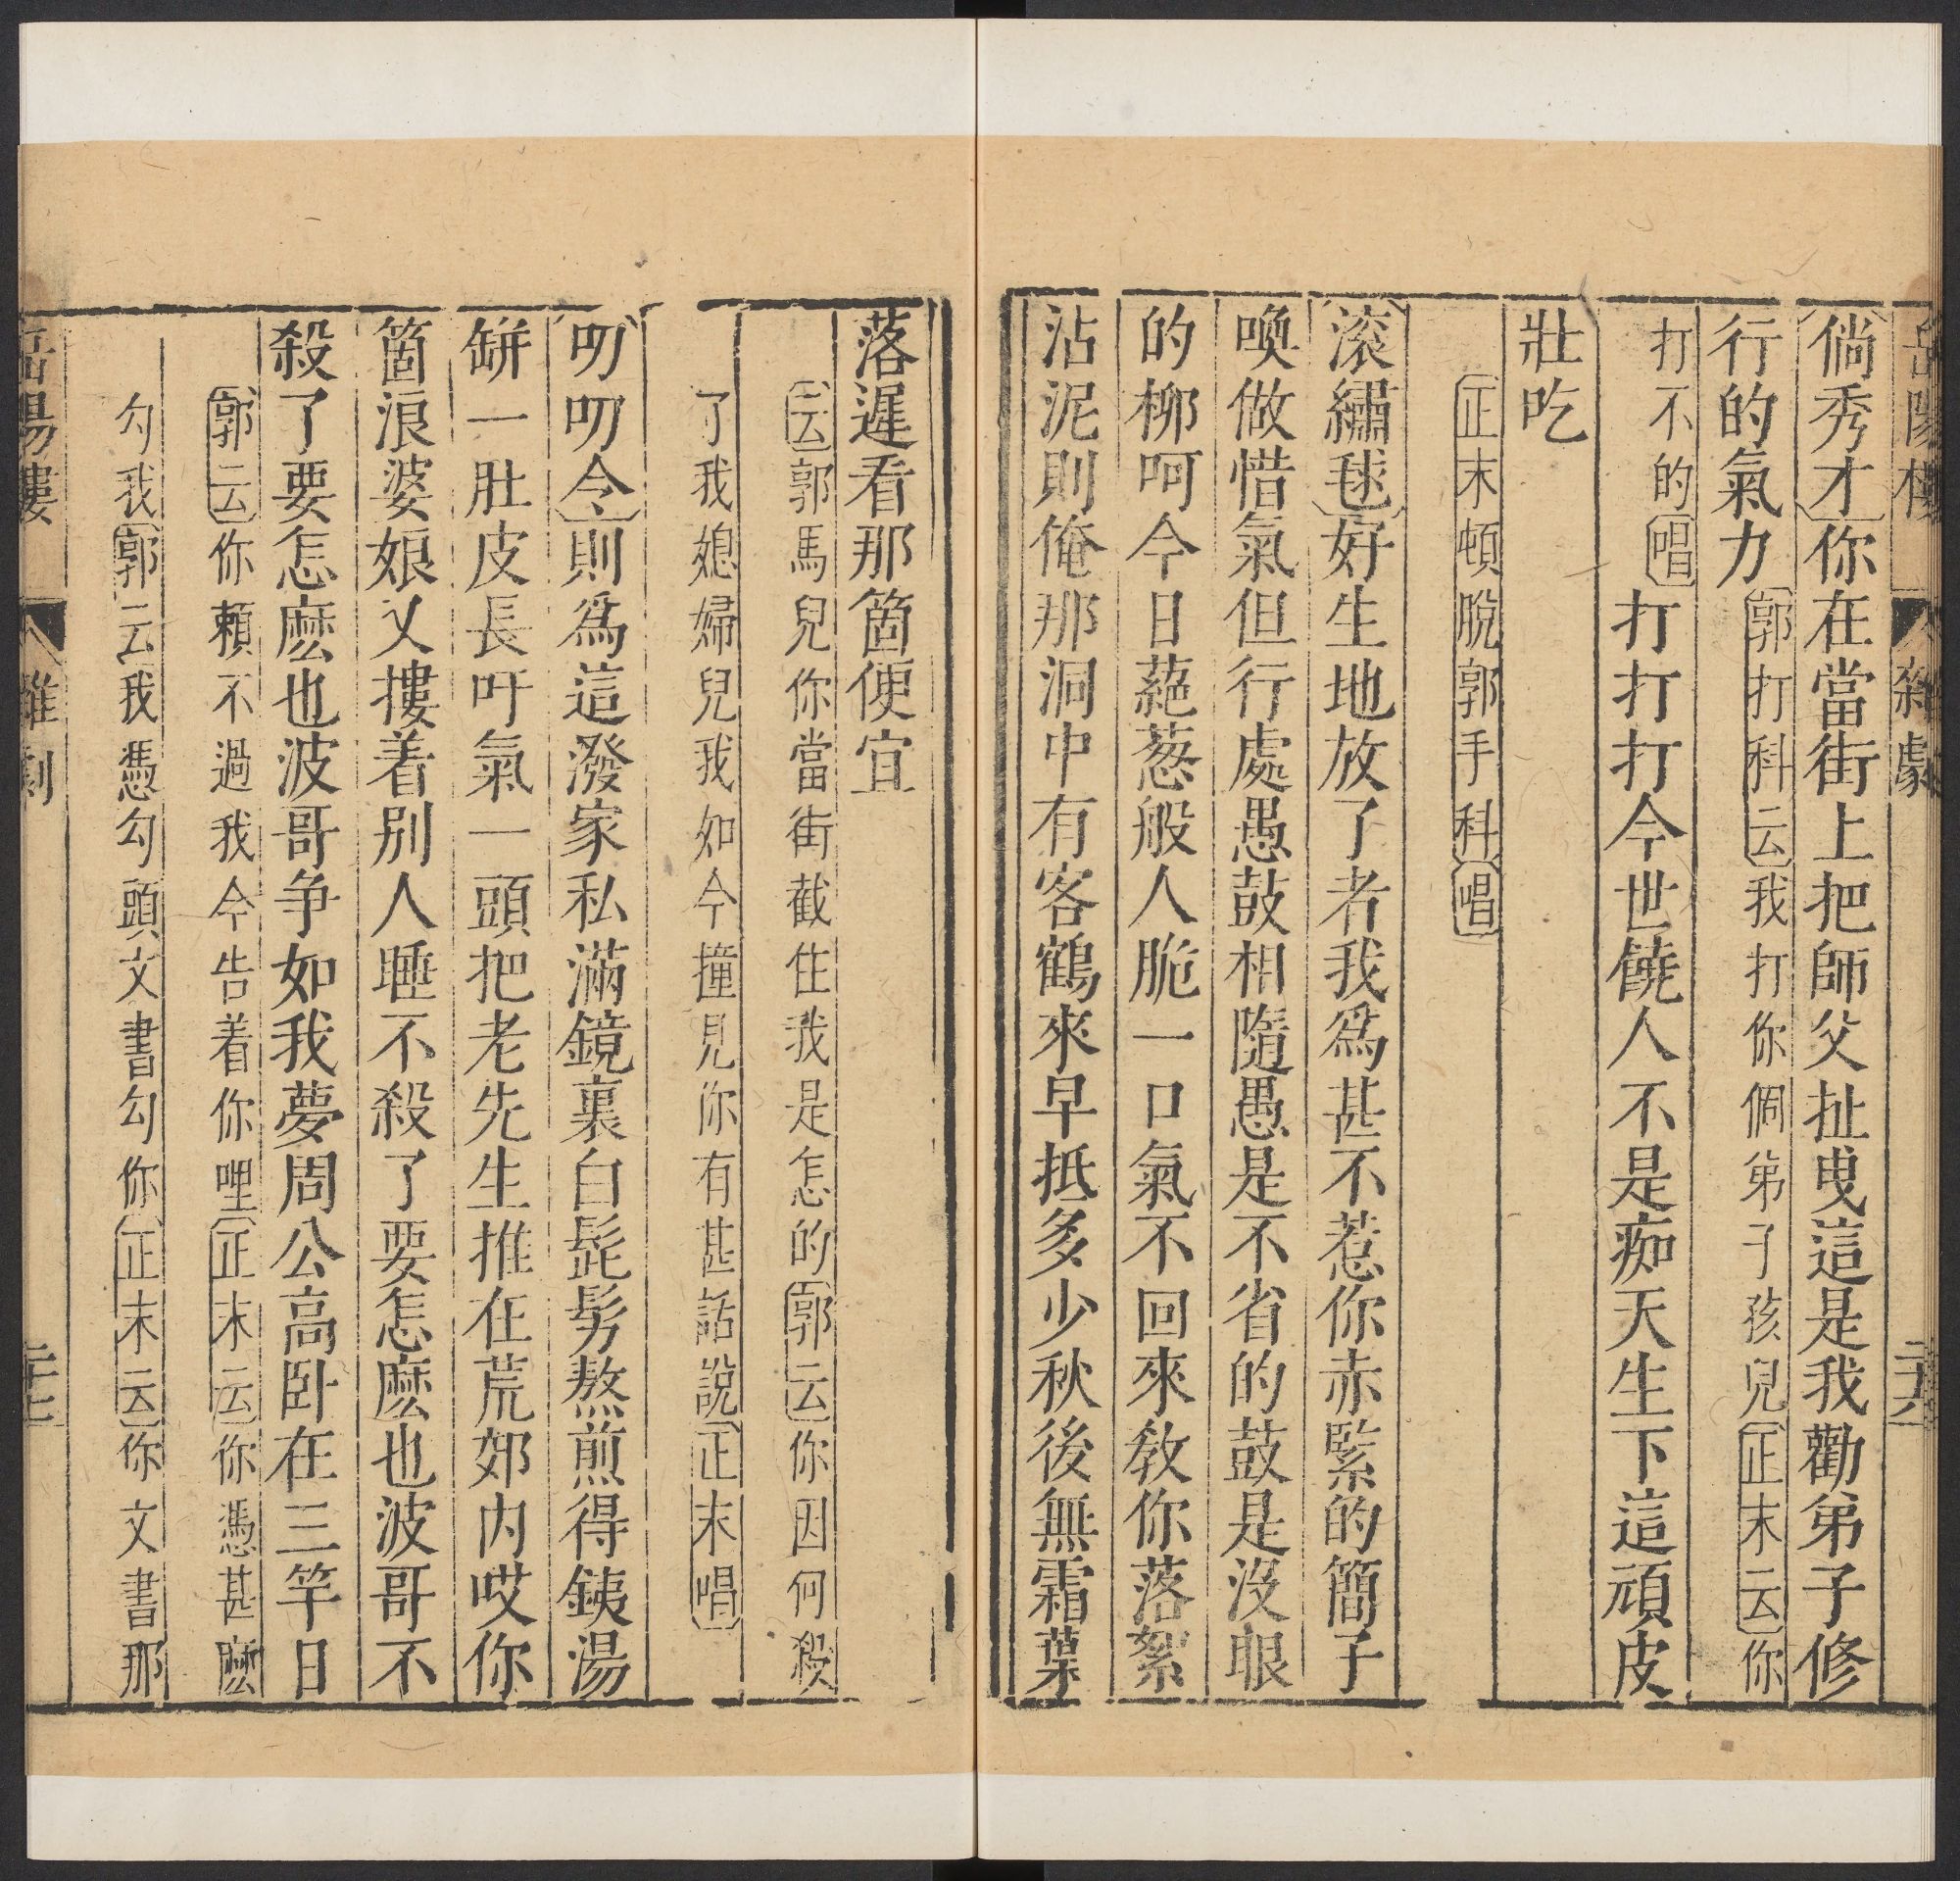 岳陽樓 雜劇 二十六
倘秀才你在當街上把師父扯拽這是我勸弟子修
行的氣力郭打科云我打你個弟子孩兒正末云你
打不的唱打打打今世饒人不是痴天生下這頑皮
壯吃
正末頓脫郭手科唱
滚繡毬好生地放了者我爲甚不惹你赤緊的簡子
喚做惜氣但行處愚鼓相隨愚是不省的鼓是没眼
的柳呵今日蕝葱般人脆一口氣不回來敎你落絮
沾泥則俺那洞中有客鶴來早抵多少秋後無霜葉
落遲看那箇便宜
云郭馬兒你當街截住我是怎的郭云你因何殺
了我媳婦兒我如今撞見你有甚話說正末唱
叨叨令則爲這潑家私滿鏡裏白髭髣熬煎得銕湯
缾一肚皮長吁氣一頭把老先生推在荒郊内哎你
箇浪婆娘又摟着别人睡不殺了要怎麽也波哥不
殺了要怎麽也波哥争如我夢周公高卧在三竿日
郭云你賴不過我今告着你哩正末云你憑甚麽
勾我郭云我憑勾頭文書勾你正末云你文書那
岳陽樓 雜劇 二十七